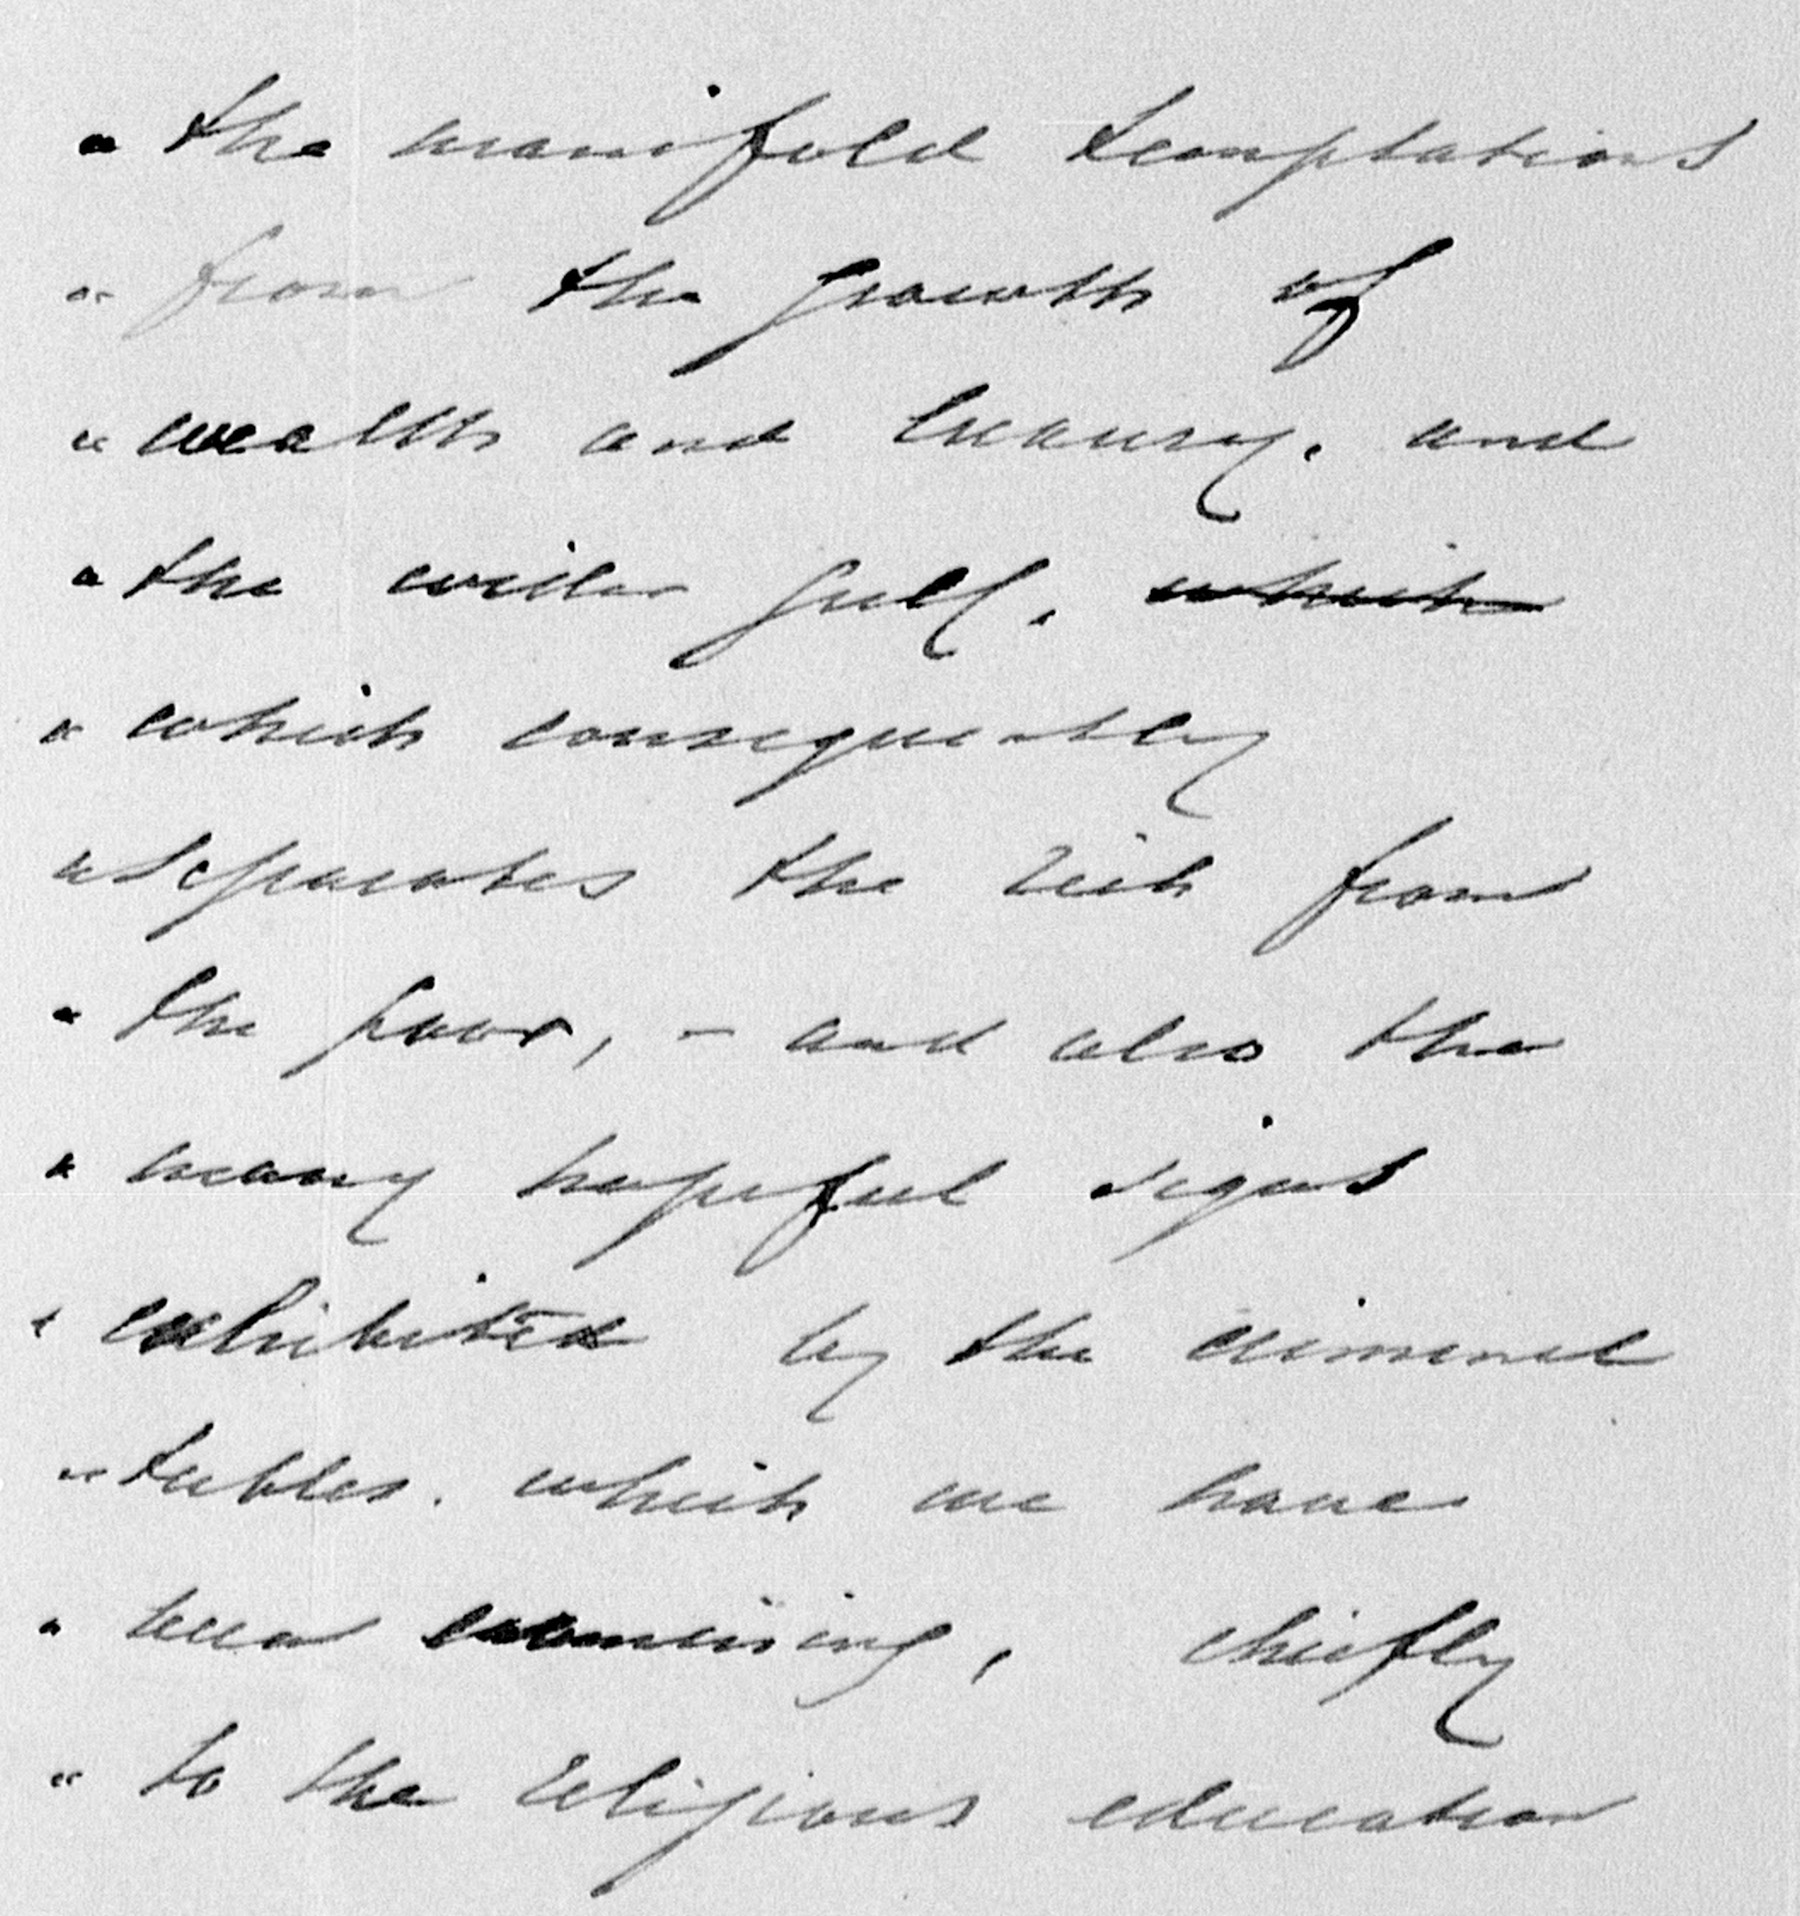 " the manifold temptations
" from the growth of
" wealth and luxury. and
" the wider gulf. which
" which consequently
" separates the rich from
" the poor, – and also the
" many hopeful signs
" exhibited by the criminal
" tables. which we have
" been examining, chiefly
" to the religious education